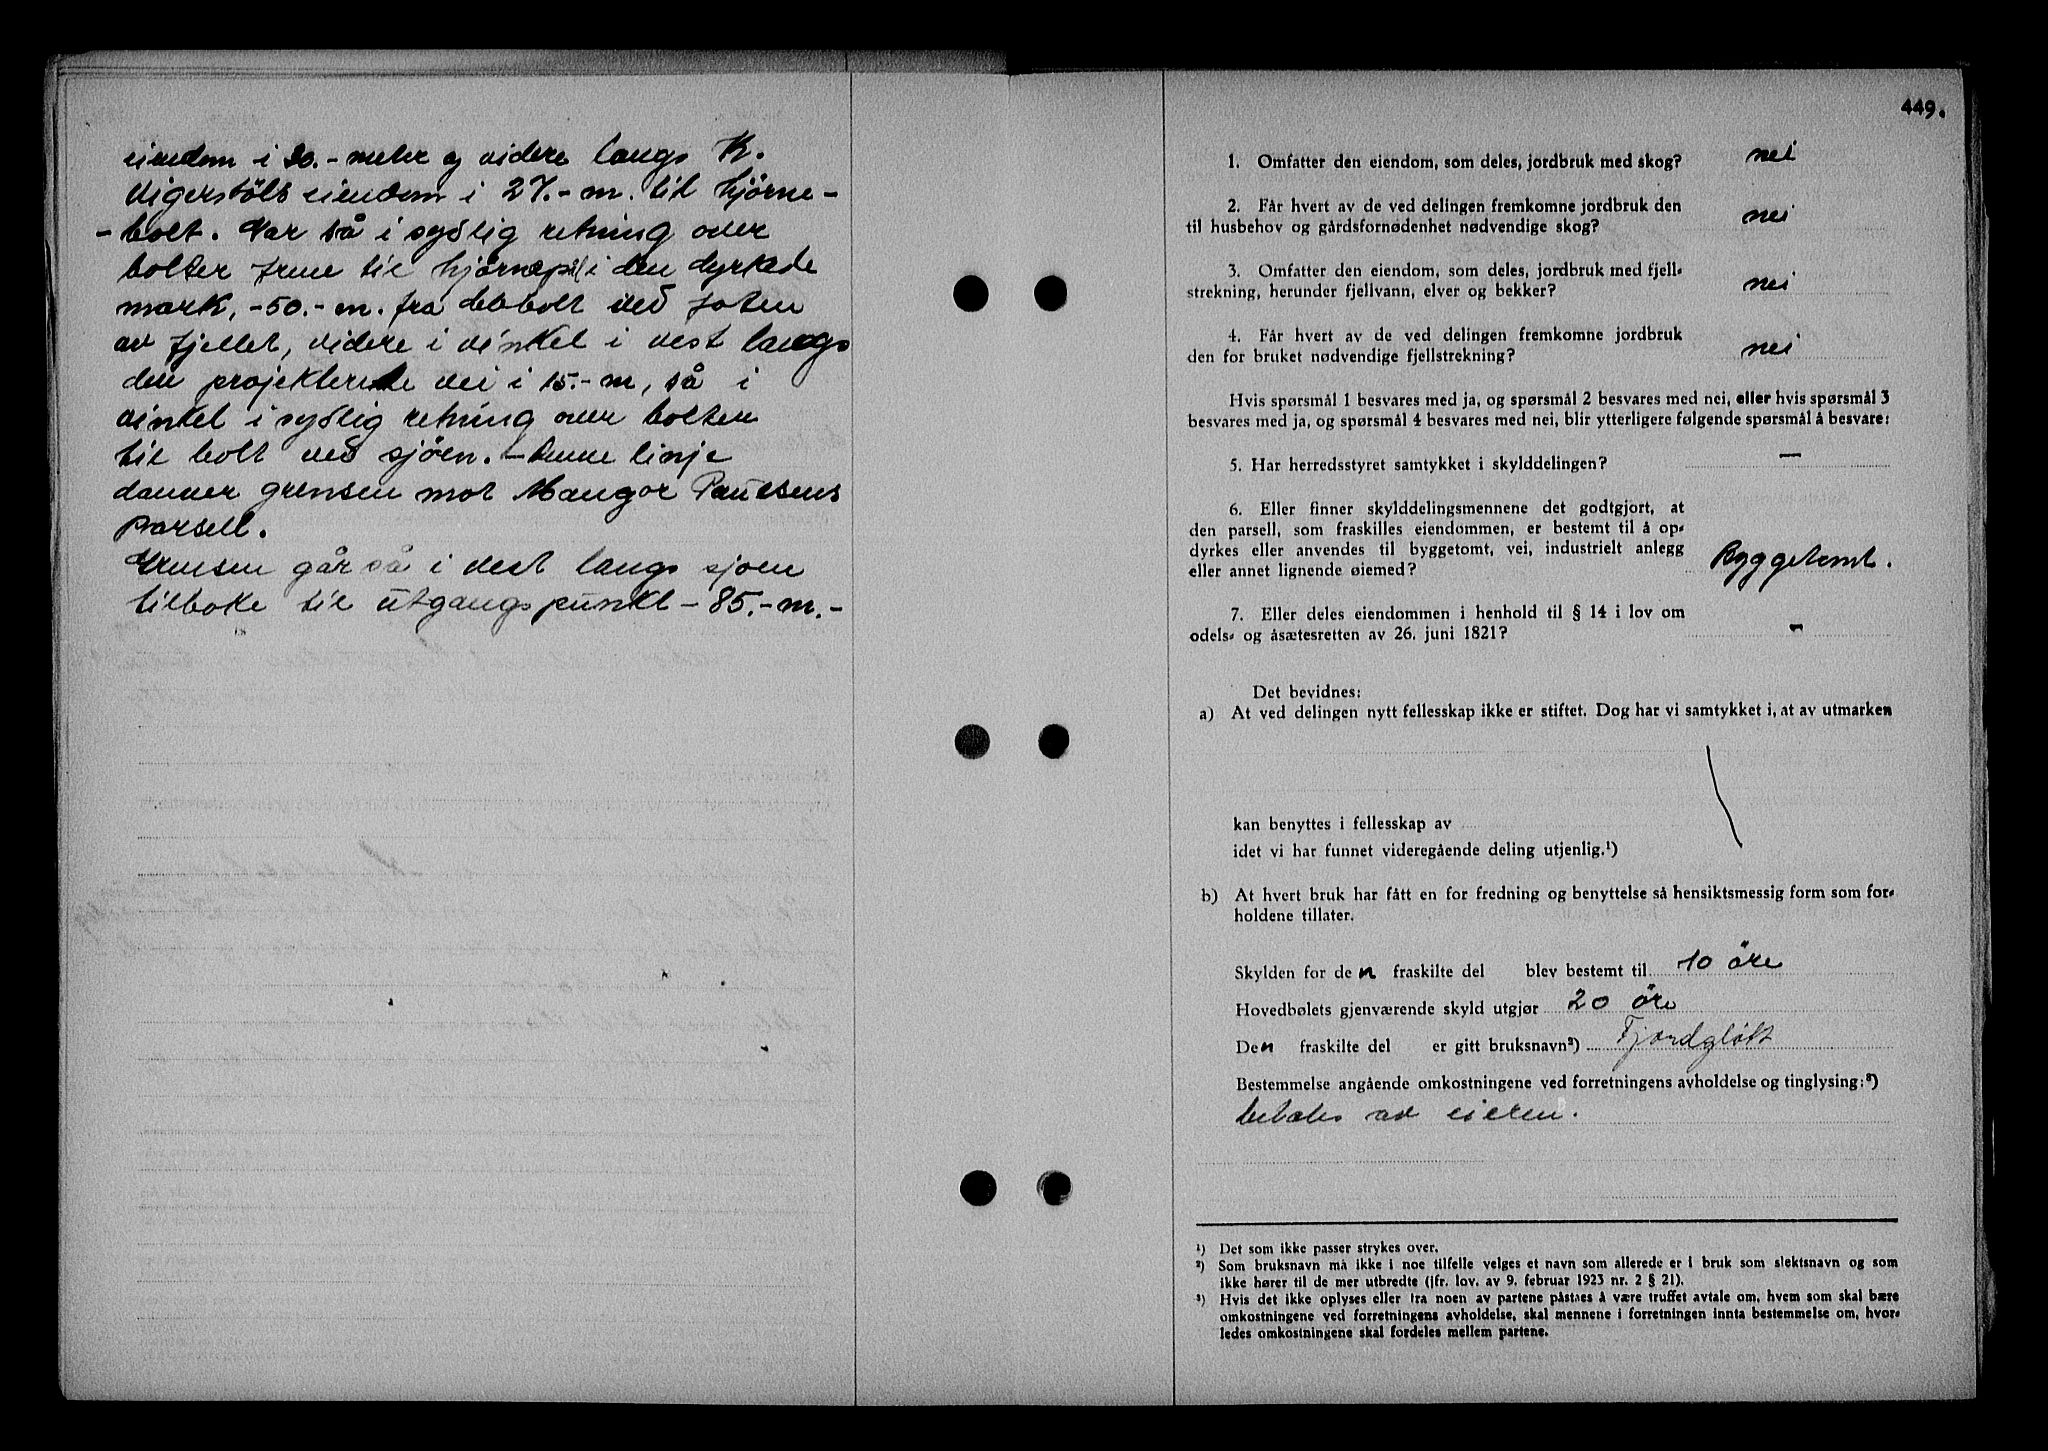 eiendom i 20.- meter og videre langs K.
Vigerstöls eiendom i 27.- m. til hjørne-
- bolt. Var så i sydlig retning over
bolter frem til hjørnepel i den dyrkede
mark, -50.- m. fra bolt ved foten
av fjellet, videre i vinkel i vest langs
den projekterede vei i 15.- m, så i
vinkel i sydlig retning over bolten
til bolt ved sjöen. - Denne linje
danner grensen mot Mangor Paulsens
parsell.
Grensen går så i vest langs sjøen
tilbake til utgangspunkt - 85.- m.-
449.
1. Omfatter den eiendom, som deles, jordbruk med skog? nei
2. Får hvert av de ved delingen fremkomne jordbruk den
til husbehov og gårdsfornødenhet nødvendige skog? nei
3. Omfatter den eiendom, som deles, jordbruk med fjell-
strekning, herunder fjellvann, elver og bekker? nei
4. Får hvert av de ved delingen fremkomne jordbruk
den for bruket nødvendige fjellstrekning? nei
Hvis spørsmål 1 besvares med ja, og spørsmål 2 besvares med nei, eller hvis spørsmål 3
besvares med ja, og spørsmål 4 besvares med nei, blir ytterligere følgende spørsmål å besvare:
5. Har herredsstyret samtykket i skylddelingen? —
6. Eller finner skylddelingsmennene det godtgjort, at
den parsell, som fraskilles eiendommen, er bestemt til å op-
dyrkes eller anvendes til byggetomt, vei, industrielt anlegg
eller annet lignende øiemed? Byggetomt.
7. Eller deles eiendommen i henhold til § 14 i lov om
odels- og åsætesretten av 26. juni 1821? -
Det bevidnes:
a) At ved delingen nytt fellesskap ikke er stiftet. Dog har vi samtykket i, at av utmarken
kan benyttes i fellesskap av
idet vi har funnet videregående deling utjenlig.¹)
b) At hvert bruk har fått en for fredning og benyttelse så hensiktsmessig form som for-
holdene tillater.
Skylden for den fraskilte del blev bestemt til 10 öre
Hovedbølets gjenværende skyld utgjør 20 öre
Den fraskilte del er gitt bruksnavn²) Fjordgløtt
Bestemmelse angående omkostningene ved forretningens avholdelse og tinglysing:³)
betales av eieren.
¹) Det som ikke passer strykes over.
²) Som bruksnavn må ikke i noe tilfelle velges et navn som allerede er i bruk som slektsnavn og som
ikke hører til de mer utbredte (jfr. lov. av 9. februar 1923 nr. 2 § 21).
³) Hvis det ikke oplyses eller fra noen av partene påstaes å være truffet avtale om, hvem som skal bære
omkostningene ved forretningens avholdelse, skal mennene i forretningen innta bestemmelse om, hvor-
ledes omkostningene skal fordeles mellem partene.